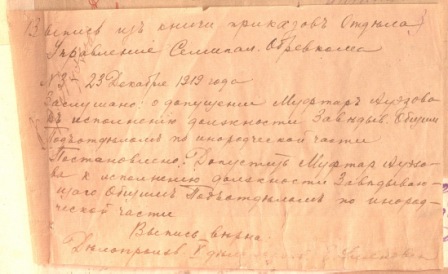 Выпись изъ книги приказовъ Отдѣла
Управление Семипал. Обревкома
№ 3 23 Декабря 1919 года
Заслушано: о допущении Мухтаръ Ауэзова
къ исполнению должности Завѣдыв. Общим
Подъотдѣломъ по инородческой части
Постановлено: Допустить Мухтар Ауэзо-
ва к исполнению должности Завѣдыван-
 Общимъ Подъотдѣломъ по инород-
ческой части
Выпись вѣрна:
Дѣлопроизв.